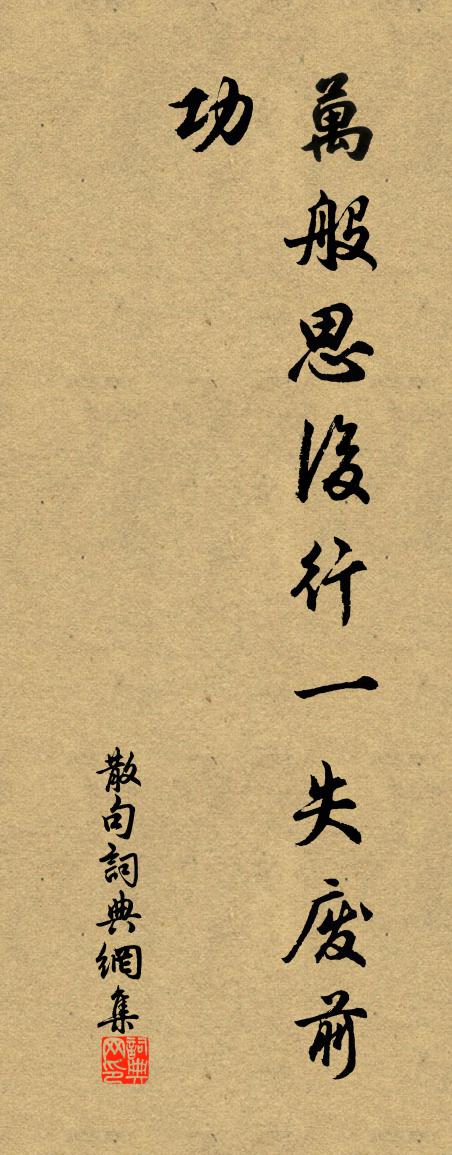 萬般思後行一失废前
功
散句詞典網集
詞典
网印